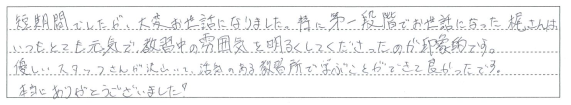 短期間でしたが、大変お世話になりました。特に第一段階でお世話になった梶さんは
いつもとても元気で、教習中の雰囲気を明るくしてくださったのが印象的です。
優しいスタッフさんが沢山いて、活気のある教習所で学ぶことができて良かったです。
本当にありがとうございました!